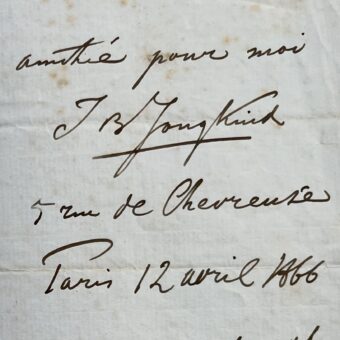 amitié pour moi
J B Jongkind
5 rue de Chevreuse
Paris 12 avril 1866